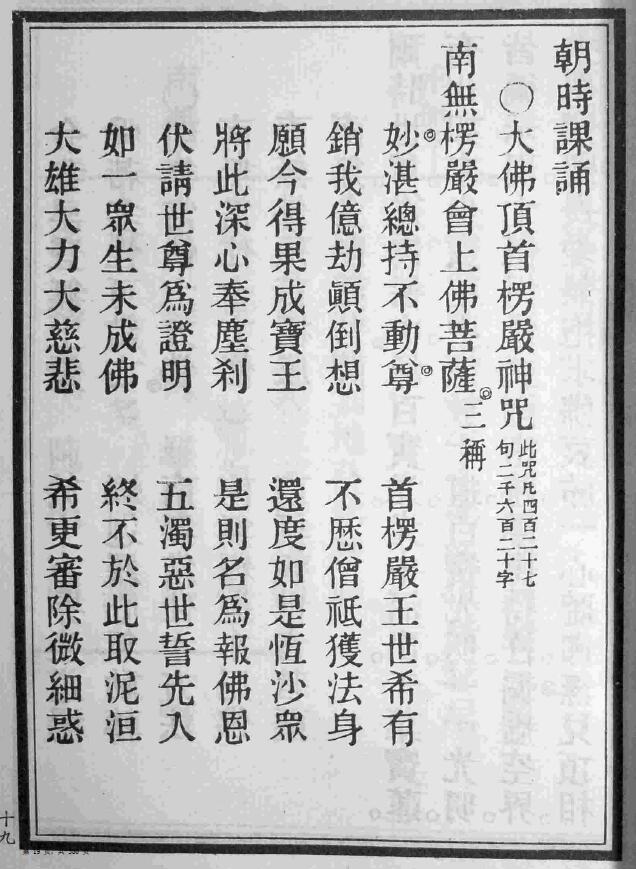 朝時課誦
〇大佛頂首楞嚴神咒
此咒凡四百二十七
句二千六百二十字
南無楞嚴會上佛菩薩三稱
妙湛總持不動尊 首楞嚴王世希有
銷我億劫顚倒想 不歷僧祇獲法身
願今得果成寶王 還度如是恆沙眾
將此深心奉塵剎 是則名爲報佛恩
伏請世尊爲證明 五濁惡世誓先入
如一眾生未成佛 終不於此取泥洹
大雄大力大慈悲 希更審除微細惑
十九